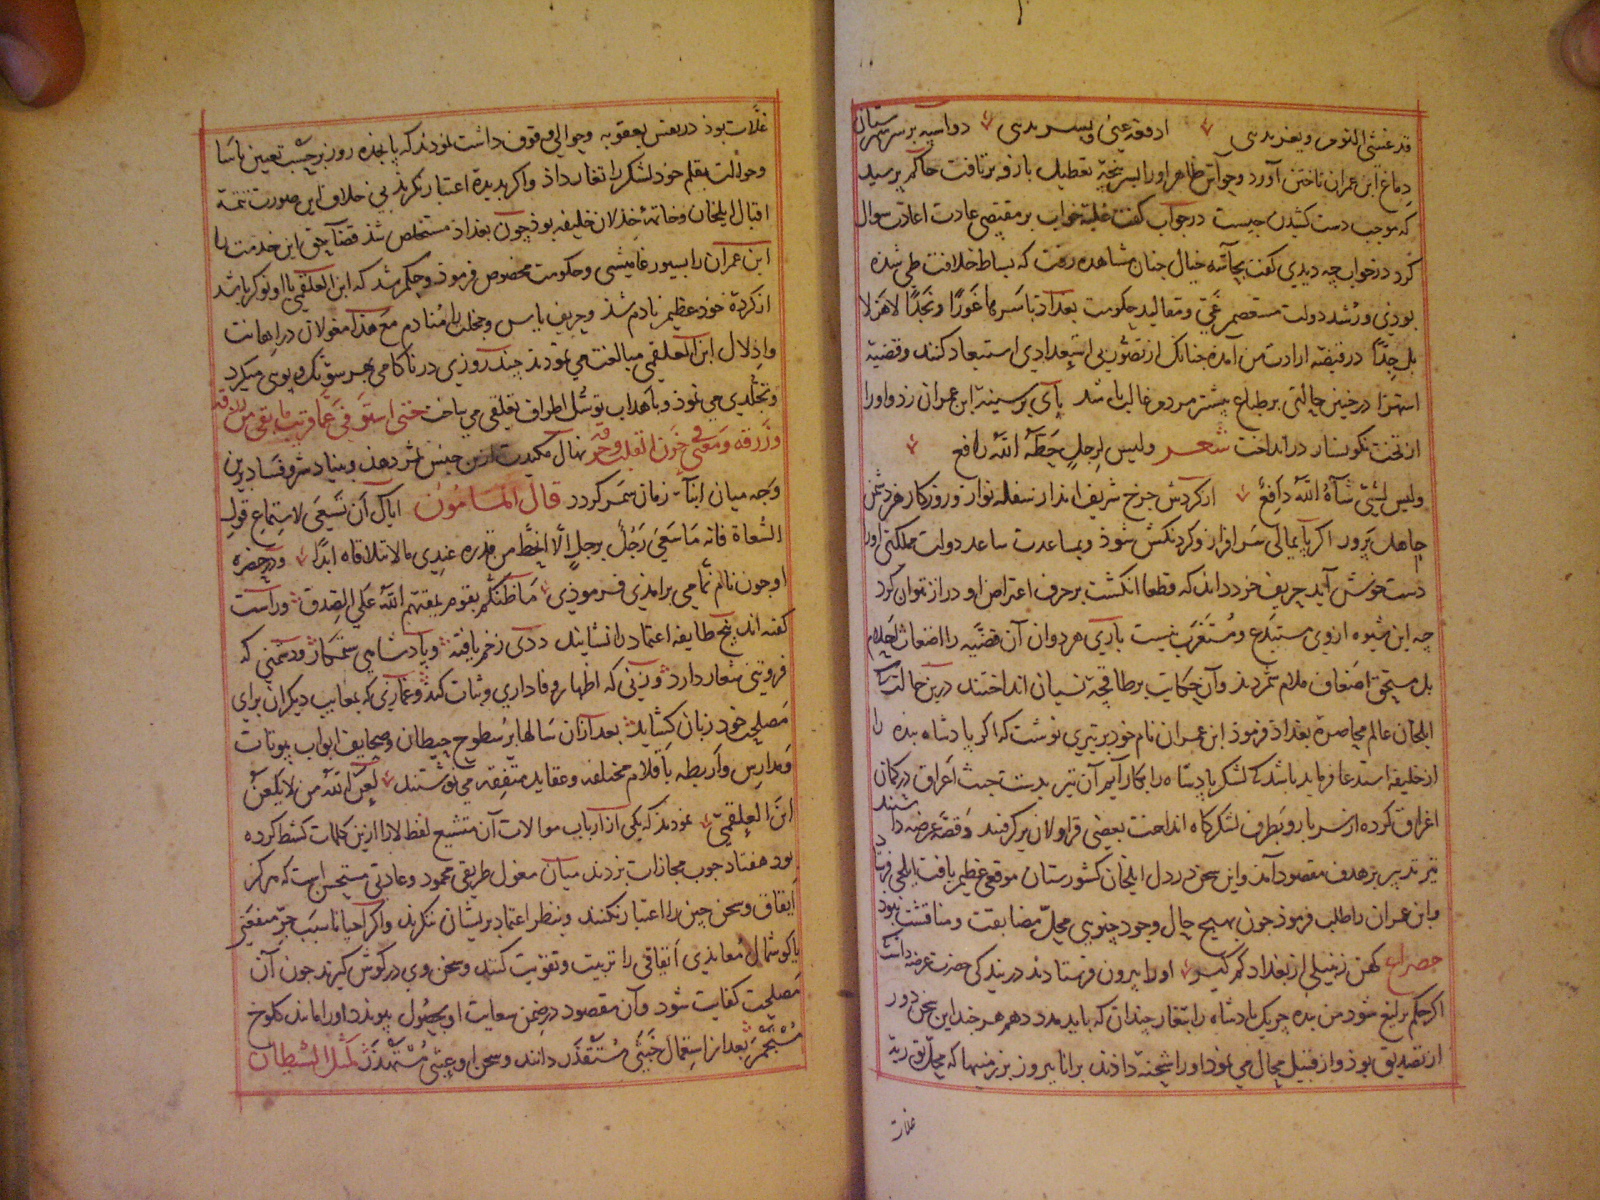 قد غشی النوم
دماغ ابن عمران تاختن آورد و حواس ظاهر او را بسر پنجه تعطیل بازو برتافت حاکم پرسید
که موجب دست کشیدن چیست در جواب گفت غلبه خواب بر مقتضی عادت اعادت سوال
کرد در خواب چه دیدی گفت بحاسه خیال چنان مشاهده رفت که بساط خلافت طی شده
بودی و رشد دولت مستعصم غی و مقالید حکومت بغداد باسرها غورا و نجدا لا هزلا
بل جدا در قبضه ارادت من آمده چنانک از تصور بی استبعادی استبعاد کنند و قضیه
استهزا در چنین حالتی بر طباع بیشتر مردم غالب باشد پای بر سینه ابن عمران زد و او را
از تخت نگونسار در انداخت شعر ولیس لرجل حطه الله رافع
ولیس لشیئ شآءه الله دافع از گردش چرخ شریف انداز سفله نواز و روزگار هنر دشمن
جاهل پرور اگر پایمالی سرافراز و گردنکش شود و بمساعدت ساعد دولت مملکتی او را
دست خوش آید حریف خرد داند که قطعا انگشت بر حرف اعتراض او دراز نتوان کرد
چه این شیوه از وی مستبدع و مستغرب نیست باری هر دوان آن قضیه را اضغاث احلام
بل مستحق اضعاف ملام شمردند و آن حکایت بر طاقچه نسیان انداختند درین حالت که
ایلخان عالم محاصره بغداد فرمود ابن عمران نام خود بر تیری نوشت که اگر پادشاه بنده را
از خلیفه استدعا فرماید باشد که لشکر پادشاه را بکار آیم آن تیر بدست جنت اغراق در کمان
اغراق کرده از سر بارو بطرف لشکرگاه انداخت بعضی قراولان برگرفتند و قصه عرضه داشتند
تیر تدبیر بر هدف مقصود آمد و این سخن در دل ایلخان کشورستان موقعی عظیم یافت ایلچی فرستاد
و ابن عمران را طلب فرمود چون بهیچ حال وجود چنویی محل مضایقت و مناقشت نبود
مصراع کهن زنبیلی از بغداد کم گیر او را بیرون فرستادند در بندگی حضرت عرضه داشت که
اگر حکم یرلیغ شود من بنده چریک پادشاه را بتغار چندان که باید مدد دهم هر چند این سخن دور
از تصدیق بود و از قبیل محال می نمود او را شحنه دادند براتا بیرون بزرمینها که محل توریه
غلات
غلات بود در بعض بعقوبه و حوالی وقوف داشت نمودند که پانجده روز بر حسب تعیین یاسا
و حوالت بقلم خود لشکر را تغار داد و اگر بدیده اعتبار نگرند بی خلاف این صورت تتمه
اقبال ایلخان و خاتمه خذلان خلیفه بود چون بغداد مستخلص شد قضآء حق این خدمت را
ابن عمران را بسیورغامیشی و حکومت مخصوص فرمود و حکم شد که ابن العلقمی با او نوکر باشد
از کرده خود عظیم نادم شد و حریف یاس و خجلت را منادم مع هذا مغولان در اهانت
و اذلال ابن العلقمی مبالغت می نمودند چند روزی در ناکامی بهر سو تک و پویی میکرد
و تجلدی می نمود و باهداب توسل اطراف تعلقی می ساخت حتی استوفی عما قریب ما بقی من رزقه
نهال مکیدت ازین جنس ثمر دهد و بنیاد شر و فساد برین
وجه میان ابنآء زمان سمر گردد قال المامون ایاک ان تسعی لاستماع قول
السعاة فانه ما سعی رجل برجل الا انحط من قدره عندی ما لا تتلاقاه ابدا و در حضرت
او چون نام نمامی براندندی فرمودی ما ظنکم بقوم یمقتهم الله علی الصدق و راست
گفته اند پنج طایفه اعتماد را نشایند ددی زخم یافته و پادشاهی ستمکار و دشمنی که
فروتنی شعار دارد و زنی که اظهار وفاداری و ثبات کند و غمازی که بمعایب دیگران برای
مصلحت خود زبان گشاید بعد از آن سالها بر سطوح حیطان و صحایف ابواب بیوتات
و مدارس و اربطه باقلام مختلفه و عقاید متفقه می نوشتند لعن الله من لا یلعن
ابن العلقمی نمودند که یکی از ارباب موالات آن متشیع لفظ لا را ازین کلمات کشط کرده
بود هفتاد چوب مجازات بزدند میان مغول طریقی محمود و عادتی مستحسن است که هرگز
ایقاق و سخن چین را اعتبار نکنند و بنظر اعتماد بریشان ننگرند و اگر احیانا سبب جر منفعتی
یا گوشمال معاندی ایقاقی را تربیت و تقویت کنند و سخن وی در گوش گیرند چون آن
مصلحت کفایت شود و آن مقصود در ضمن سعایت او بحصول پیوندد او را مانند کلوخ
مستجمر بعد از استعمال خبثی مستقذر دانند و سخن او عبثی مستهذر مثل الشیطان